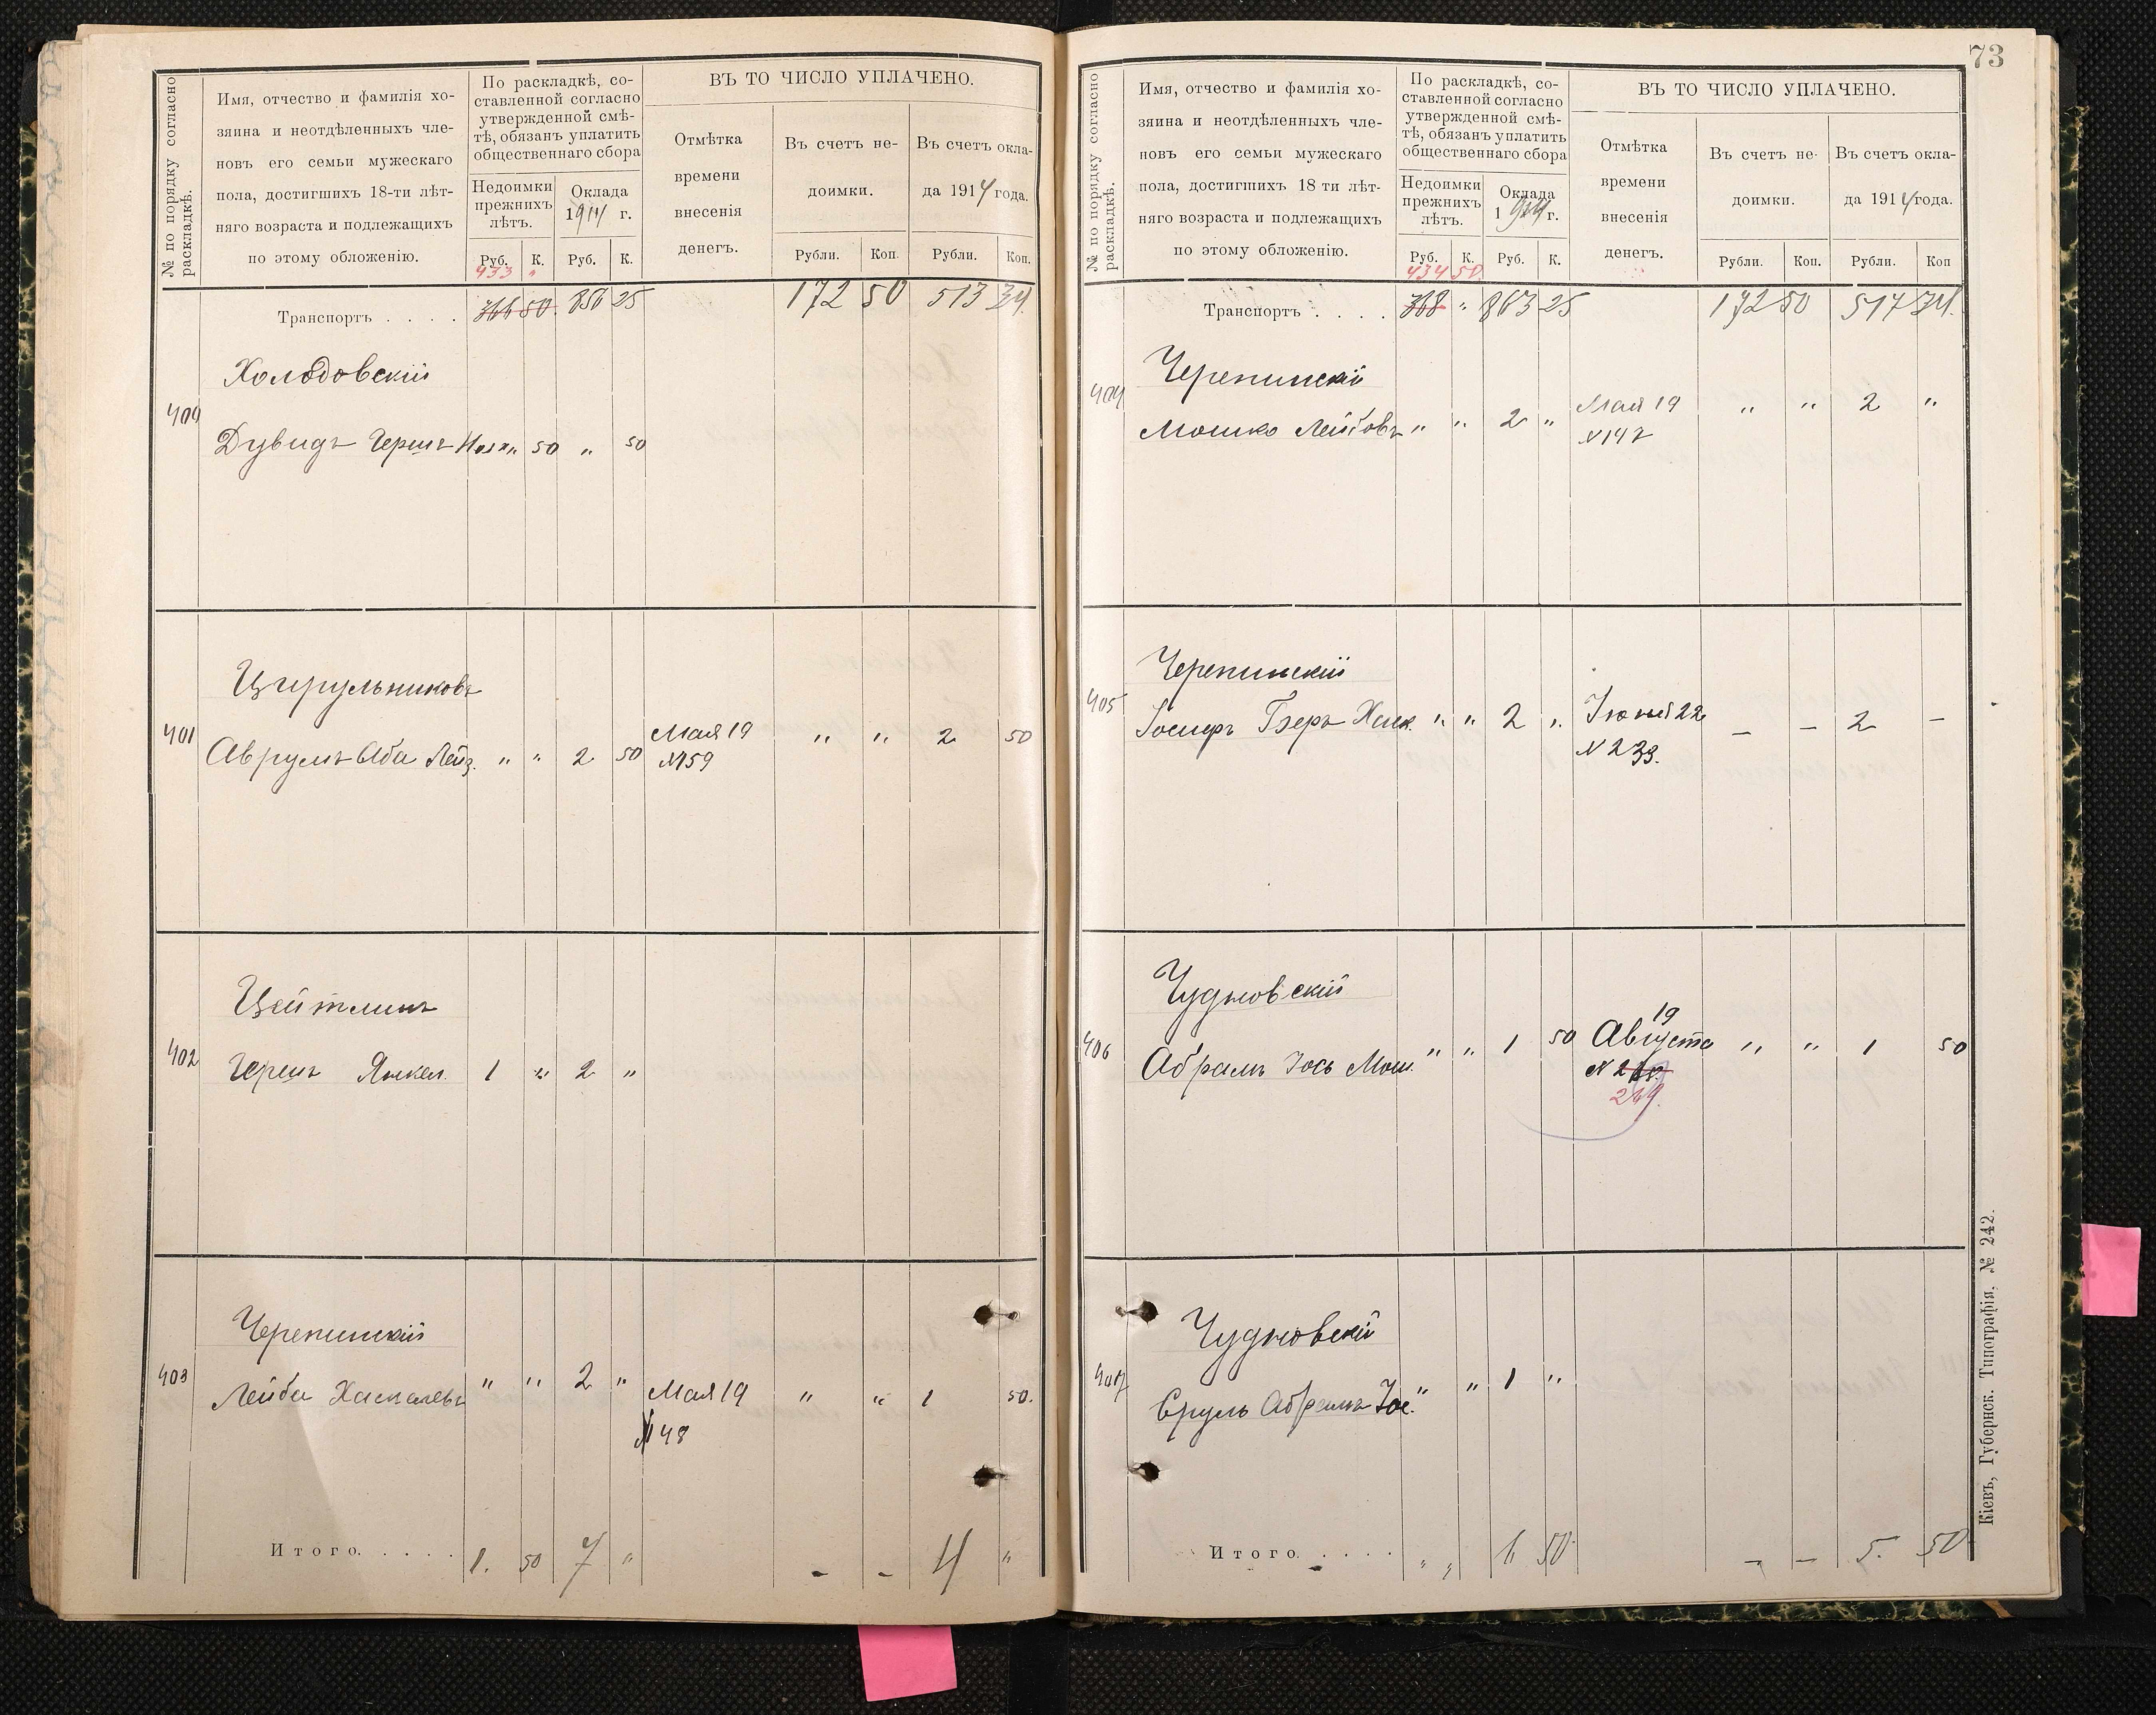 № по порядку согласно раскладкѣ.
Имя, отчество и фамилія хо-
зяина и неотдѣленныхъ чле-
новъ его семьи мужескаго
пола, достигшихъ 18-ти лѣт-
няго возраста и подлежащихъ
по этому обложенію.
По раскладкѣ, со-
ставленной согласно
утвержденной смѣ-
тѣ, обязанъ уплатить
общественнаго сбора
Недоимки
прежнихъ
лѣтъ.
Оклада
1914 г.
Руб. К. Руб. К.
ВЪ ТО ЧИСЛО УПЛАЧЕНО.
Отмѣтка
времени
внесенія
денегъ.
Въ счетъ не-
доимки.
Въ счетъ окла-
да 1914 года.
Рубли. Коп. Рубли. Коп.
433 "
Транспортъ . . . . 366 50 856 25 172 50 513 34.
Холодовскій
409 Дувидъ Гершъ 50 " 50
Цирульниковъ
401 Аврумъ Аба Лейз. " " 2 50 Мая 19 " " 2 50
№159
Цейтлинъ
402 Гершъ Янкел. 1 " 2 "
Черепинскій
403 Лейба Хаскалевъ " " 2 " Мая 19 " " 1 50.
№ 48
Итого. . . . . 1. 50 7 " - - 4 "
73
№ по порядку согласно раскладкѣ.
Имя, отчество и фамилія хо-
зяина и неотдѣленныхъ чле-
новъ его семьи мужескаго
пола, достигшихъ 18 ти лѣт-
няго возраста и подлежащихъ
по этому обложенію.
По раскладкѣ, со-
ставленной согласно
утвержденной смѣ-
тѣ, обязанъ уплатить
общественнаго сбора
Недоимки
прежнихъ
лѣтъ.
Оклада
1914 г.
Руб. К. Руб. К.
ВЪ ТО ЧИСЛО УПЛАЧЕНО.
Отмѣтка
времени
внесенія
денегъ.
Въ счетъ не-
доимки.
Въ счетъ окла-
да 1914 года.
Рубли. Коп. Рубли. Коп
434 50
Транспортъ . . . . 368 " 863 25 172 50 517 34.
Черепинскій
404 Мошко Лейбовъ " " 2 " Мая 19 " " 2 "
№147
Черепинскій
405 Іосифъ Беръ Хаск. " " 2 " Іюня 22 — — 2 —
№ 233.
Чудновскій
19
406 Абрамъ Іось Мош. " " 1 50 Августа " " 1 50
269.
Чудновскій
407 Сруль Абрамъ Іос. " " 1 "
Итого. . . . . " " 6 50 — — 5. 50
Кіевъ, Губернск. Типографія, № 242.